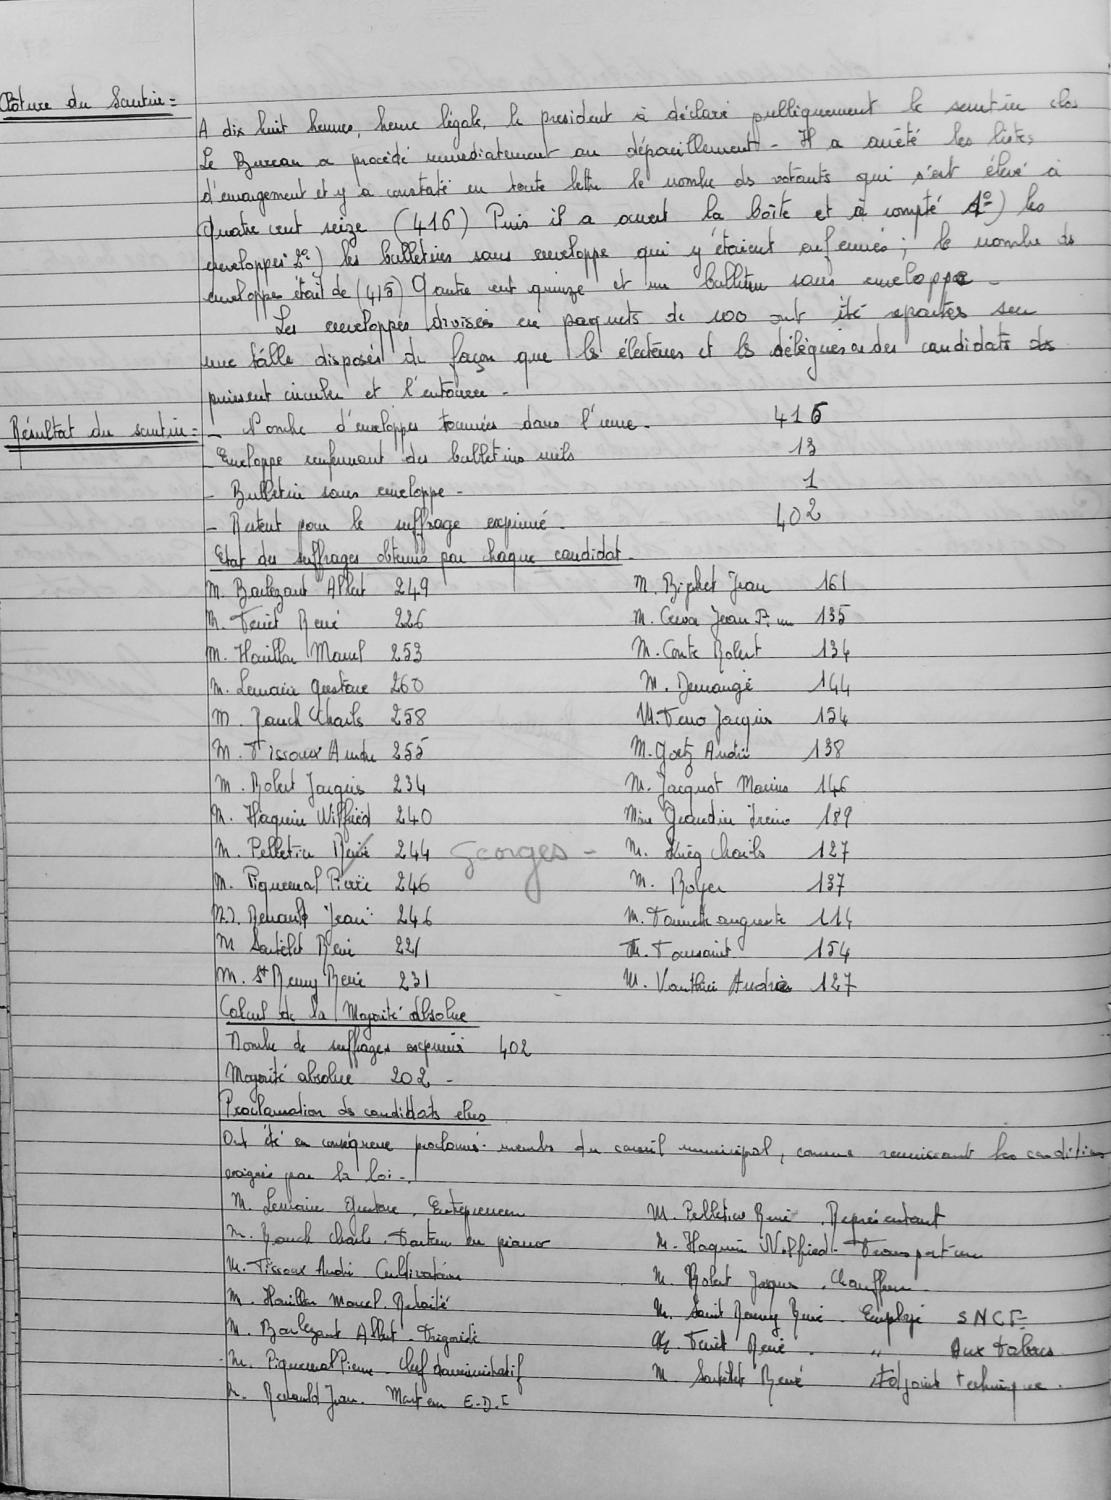 Clôture du Scrutin =
A dix huit heures, heure légale, le president à déclaré publiquement le scrutin clos
Le Bureau a procédé immediatement au dépouillement - Il a arrêté les listes
d'emargement et y a constaté en toute lettre le nombre des votants qui s'est élevé à
Quatre cent seize (416) Puis il a ouvert la boîte et à compté 1º) les
enveloppes 2º) les bulletins sans enveloppe qui y étaient enfermés ; le nombre de
enveloppes était de (415) Quatre cent quinze et un bulletin sans enveloppe -
Les enveloppes divisées en paquets de 100 ont été reparties sur
une table disposés de façon que les électeurs et les délégués des candidats
puissent circuler et l'entourer -
Résultat du scrutin =
- Nombre d'enveloppes trouvées dans l'urne - 415
- Enveloppe renfermant des bulletins nuls 13
- Bulletin sans enveloppe - 1
- Restent pour le suffrage exprimé - 402
Etat des suffrages obtenus par chaque candidat -
M. Barlezant Albert 249 M. Biphet Jean 161
M. Feriet René 226 M. Jean P. 135
M. Houillon Marcel 253 M. Conte Robert 134
M. Lemaire Gustave 260 M. Demange 144
M. Rauch Charles 258 M. Jacques 154
M. Tissoux Andre 255 M. Goetz André 138
M. Robert Jacques 234 M. Jacquot Marius 146
M. Haquin Wilfried 240 Mme Irène 189
M. Pelletier René 244 Georges - M. Krieg Charles 127
M. Piquemal Pierre 246 M. Roger 137
M. Renauld Jean 246 M. auguste 114
M Sartelet René 221 M. Toussaint 154
M. St Remy René 231 M. Vauthier André 127
Calcul de la Majorité absolue
Nombre de suffrages exprimés 402
Majorité absolue 202 -
Proclamation des candidats elus
Ont été en conséquence proclamés membres du conseil municipal, comme reunissant les conditions
exigées par la loi -
M. Lemaire Gustave. Entrepreneur M. Pelletier René. Représentant
M. Rauch Charles. Facteur en pianos M. Haquin Wilfried - Transporteur
M. Tissoux André Cultivateur M. Robert Jacques. Chauffeur
M. Houillon Marcel. Retraité M. Saint Remy René. Employé SNCF
M. Barlezant Albert. Frigoriste M. Feriet René. " Aux tabacs
M. Piquemal Pierre - Chef administratif M. Sartelet René Adjoint technique.
M. Renauld Jean. E.D.F